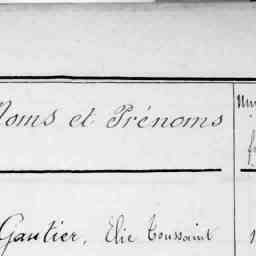 Noms et Prénoms
Gautier, Elie Toussaint